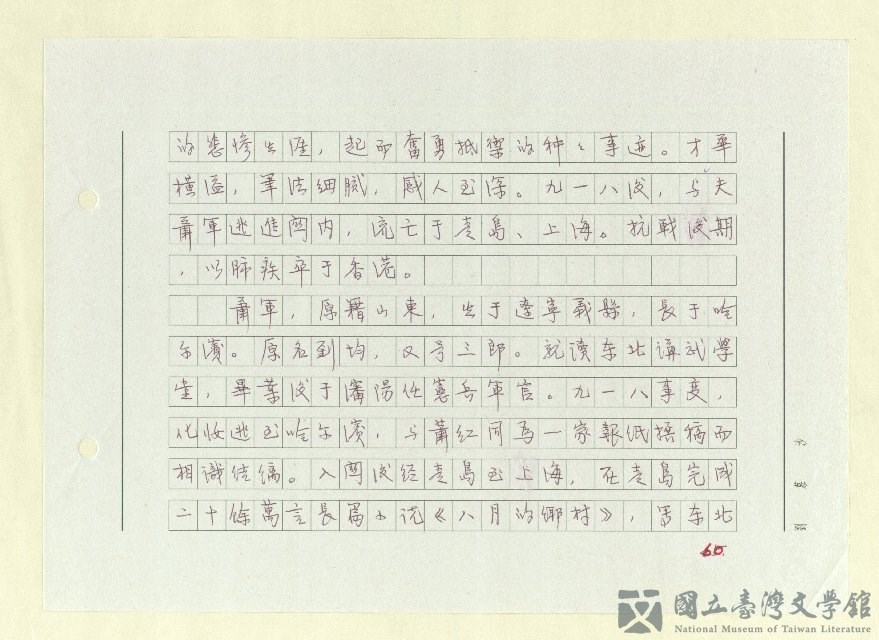 的悲慘生涯，起而奮勇抵禦的种々事迹。才華
橫溢，筆法細膩，感人至深。九一八後，与夫
蕭軍逃進関内，流亡于青島、上海。抗戰後期
，以肺疾卒于香港。
蕭軍，原籍山東，生于遼寧義縣，長于哈
尔濱。原名刘均，又号三郎。就读东北講武學
堂，畢業後于瀋陽任憲兵軍官。九一八事变，
化妝逃至哈尔濱，与蕭红同為一家報纸撰稿而
相識结縭。入関後经青島至上海，在青島完成
二十餘萬言長篇小说《八月的鄉村》，為东北
60.
國立臺灣文學館
National Museum of Taiwan Literature